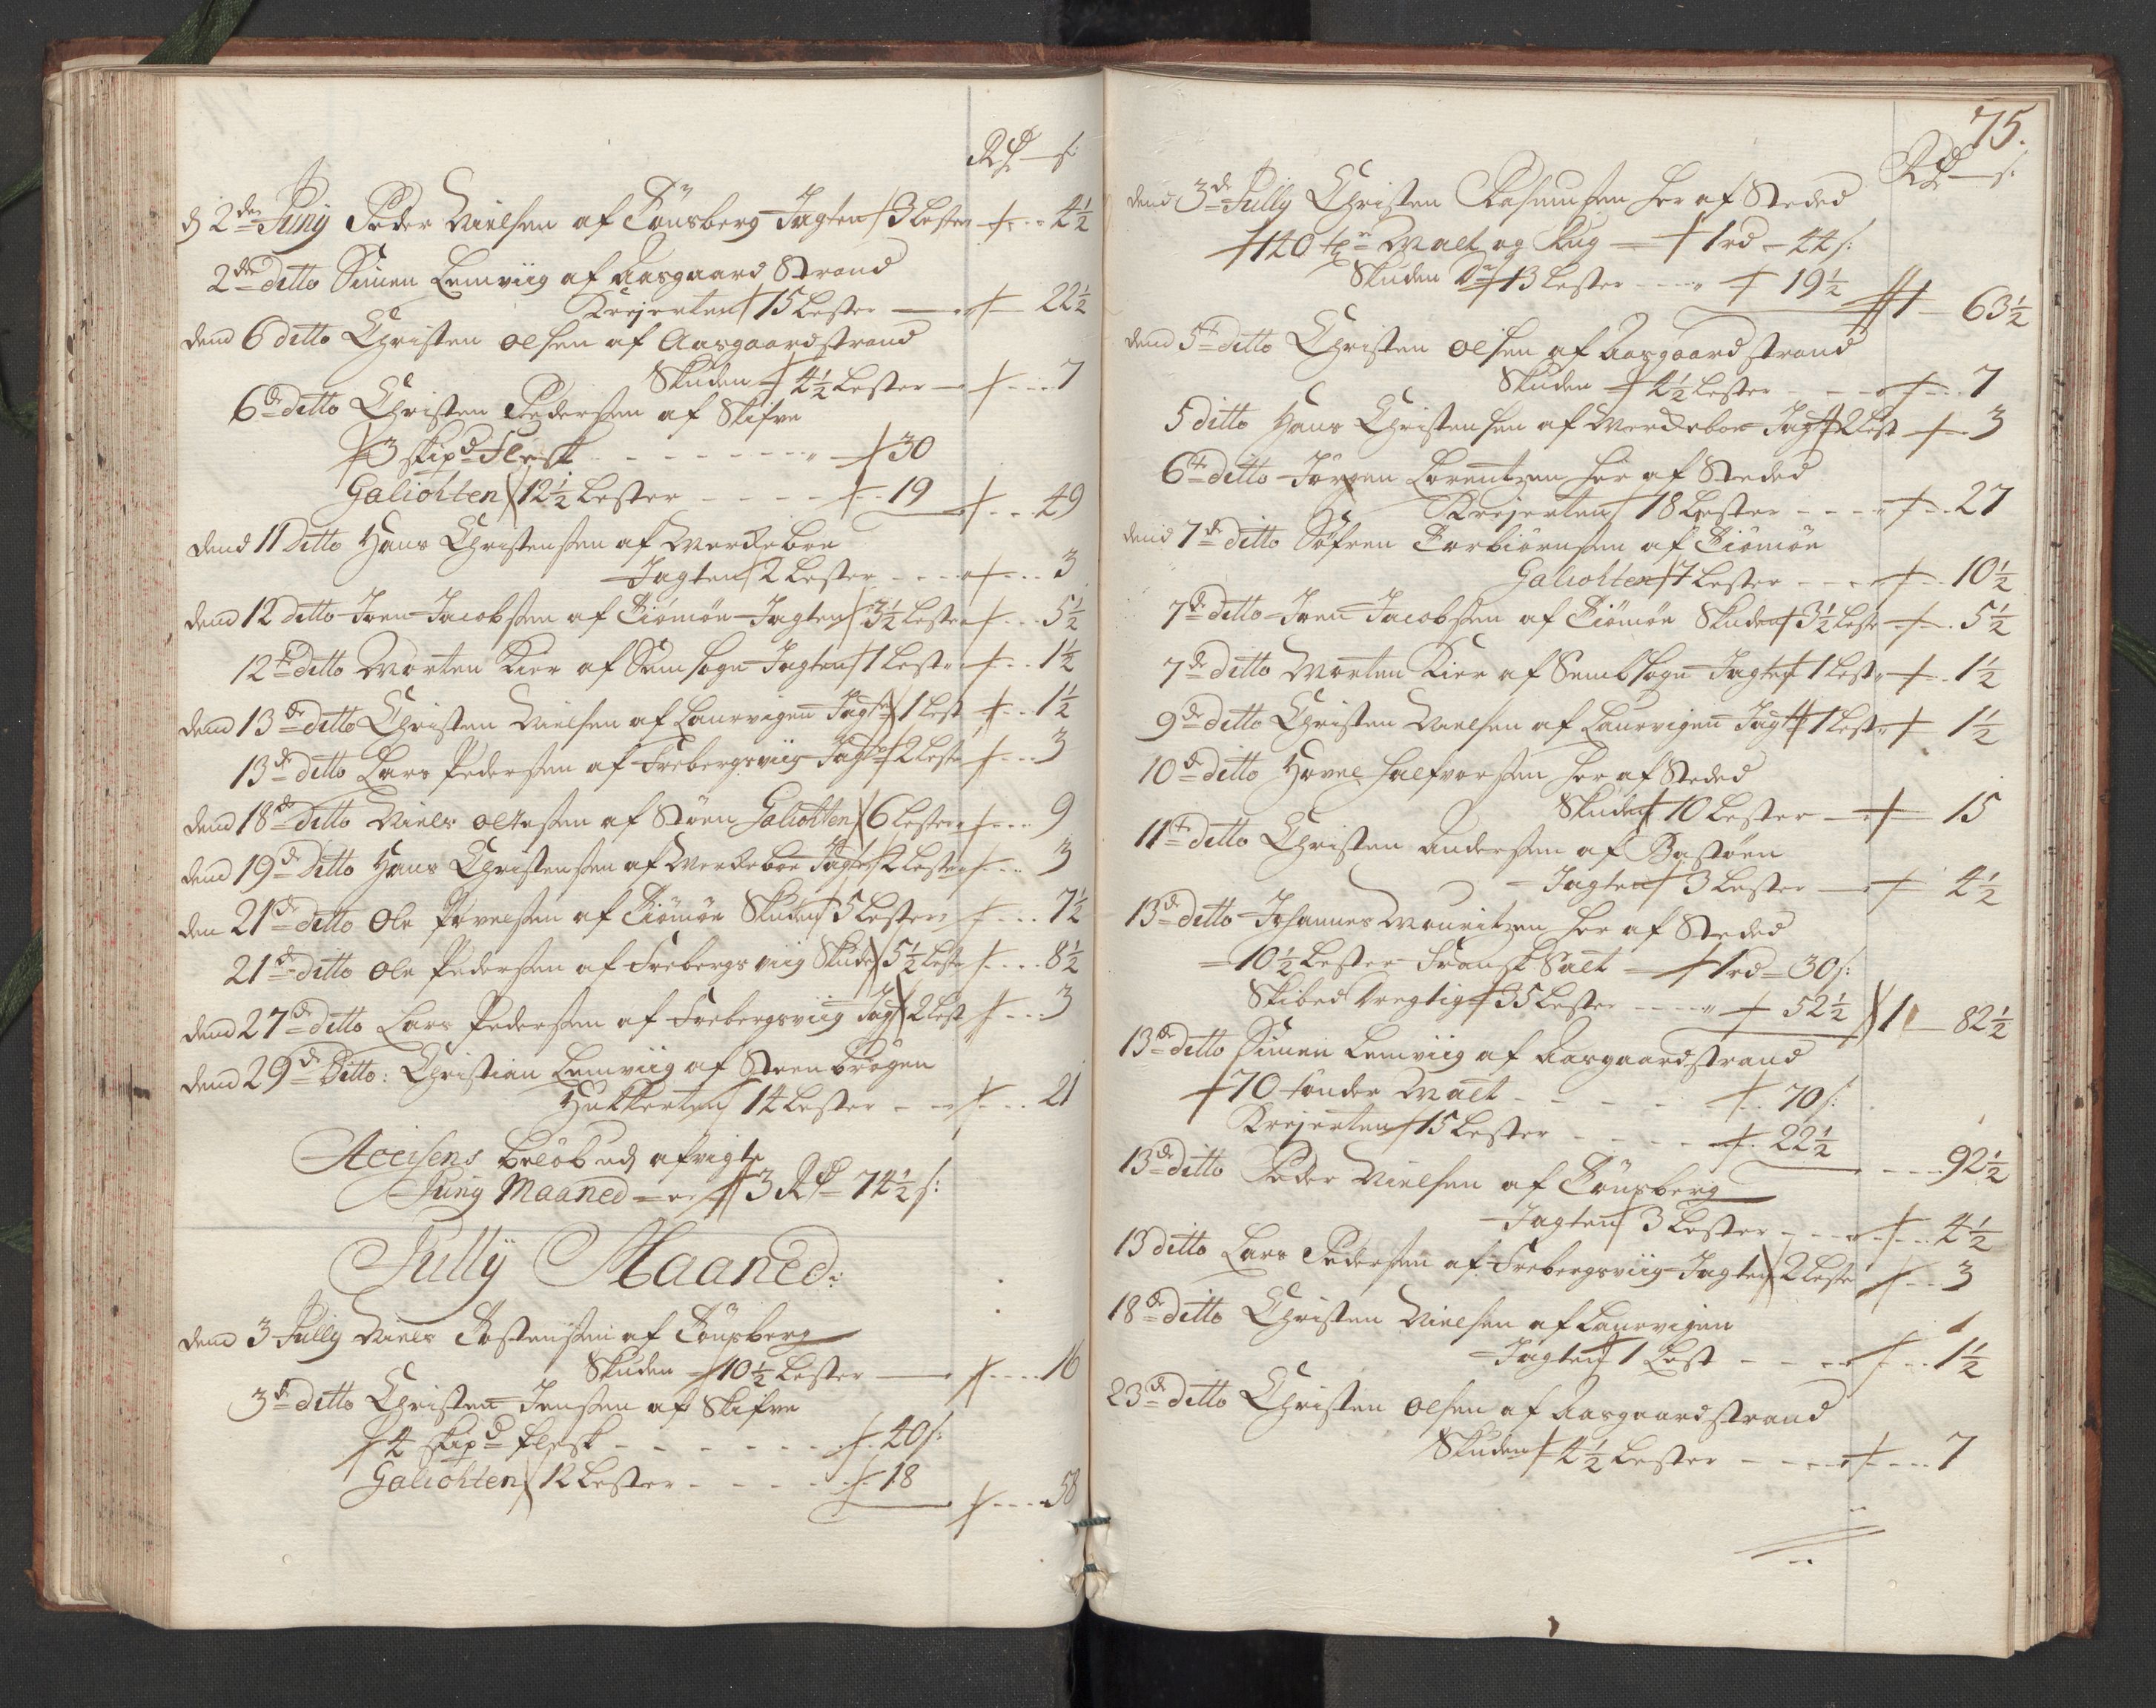 Rd s:
d 2de Juny Peder Nielsen af Tönsberg Jagten 3 Lester 4½
2de ditto Simen Lemviig af Aasgaard Strand
Krejerten 15 Lester 22½
dend 6 ditto Christen Olsen af Aasgaardstrand
Skuden 4½ Lester 7
6de ditto Christen Pedersen af Skifve
3 skipd Flesk 30
Galiohten 12½ Lester 19 49
dend 11 ditto Hans Christensen af Meredeboe
Jagten 2 Lester 3
dend 12 ditto Iven Jacobsen af Tiömön Jagten 3½ Lester 5½
12te ditto Morten Kier af Sem sogn Jagten 1 Lest 1½
dend 13de ditto Christen Nielsen af Laurvigen Jagten 1 Lest 1½
13de ditto Lars Pedersen af Frebergsviig Jagten 2 Lester 3
dend 18de ditto Niels Oltesen af Støen Galiohten 6 Lester 9
dend 19de ditto Hans Christensen af Meredeboe Jagten 2 Lester 3
den 21de ditto Ole Povelsen af Tiömön Skuden 5 Lester 7½
21de ditto Ole Pedersen af Frebergsviig Skuden 5½ Lester 8½
dend 27de ditto Lars Pedersen af Frebergsviig Jagt 2 Lest 3
dend 29de Ditto: Christian Lemviig af Steenbrögen
Hukkerten 14 Lester 21
Accisens belöb udj afvigte
Juny Maaned er 3 Rd 74½ s:
Jully Maaned:
dend 3 Jully Niels Tostensen af Tönsberg
Skuden 10½ Lester 16
3de ditto Christen Jensen af Skifve
4 skipd flesk 40 s:
Galiohten 12 Lester 18
58
75.
Rd s:
dend 3de Jully Christen Rasmusen her af Steded
140 tr Malt og Rug 1rd 44 s:
Skuden Dr 13 Lester 19½ 1 63½
dend 5te ditto Christen Olsen af Aasgaardstrand
Skuden 4½ Lester 7
5 ditto Hans Christensen af Meredeboe Jagt 2 Lest 3
6te ditto Jörgen Lorentzen her af Steded
Krejerten 18 Lester 27
dend 7de ditto Söfren Torbiörnsen af Tiömön
Galiohten 7 Lester 10½
7de ditto Iven Jacobsen af Tiömön Skuden 3½ Leste 5½
7de ditto Morten Kier af Semb sogn Jagten 1 Lest 1½
9de ditto Christen Nielsen af Laurvigen Jagt 1 Lest 1½
10de ditto Hovel Halfvorsen her af Steded
Skuden 10 Lester 15
11te ditto Christen Andersen af Bastöen
Jagten 3 Lester 4½
13de ditto Johannes Mouritzen her af Steded
10½ Lester Fransk Salt 1rd 30 s:
Skibed Dregtig 35 Lester 52½ 1 82½
13de ditto Simen Lemviig af Aasgaardstrand
70 tönder Malt 70 s:
Krejerten 15 Lester 22½
92½
13de ditto Peder Nielsen af Tönsberg
Jagten 3 Lester 4½
13 ditto Lars Pedersen af Frebergsviig Jagten 2 Leste 3
18de ditto Christen Nielsen af Laurvigen
Jagten 1 Lest 1½
23de ditto Christen Olsen af Aasgaardstrand
Skuden 4½ Lester 7